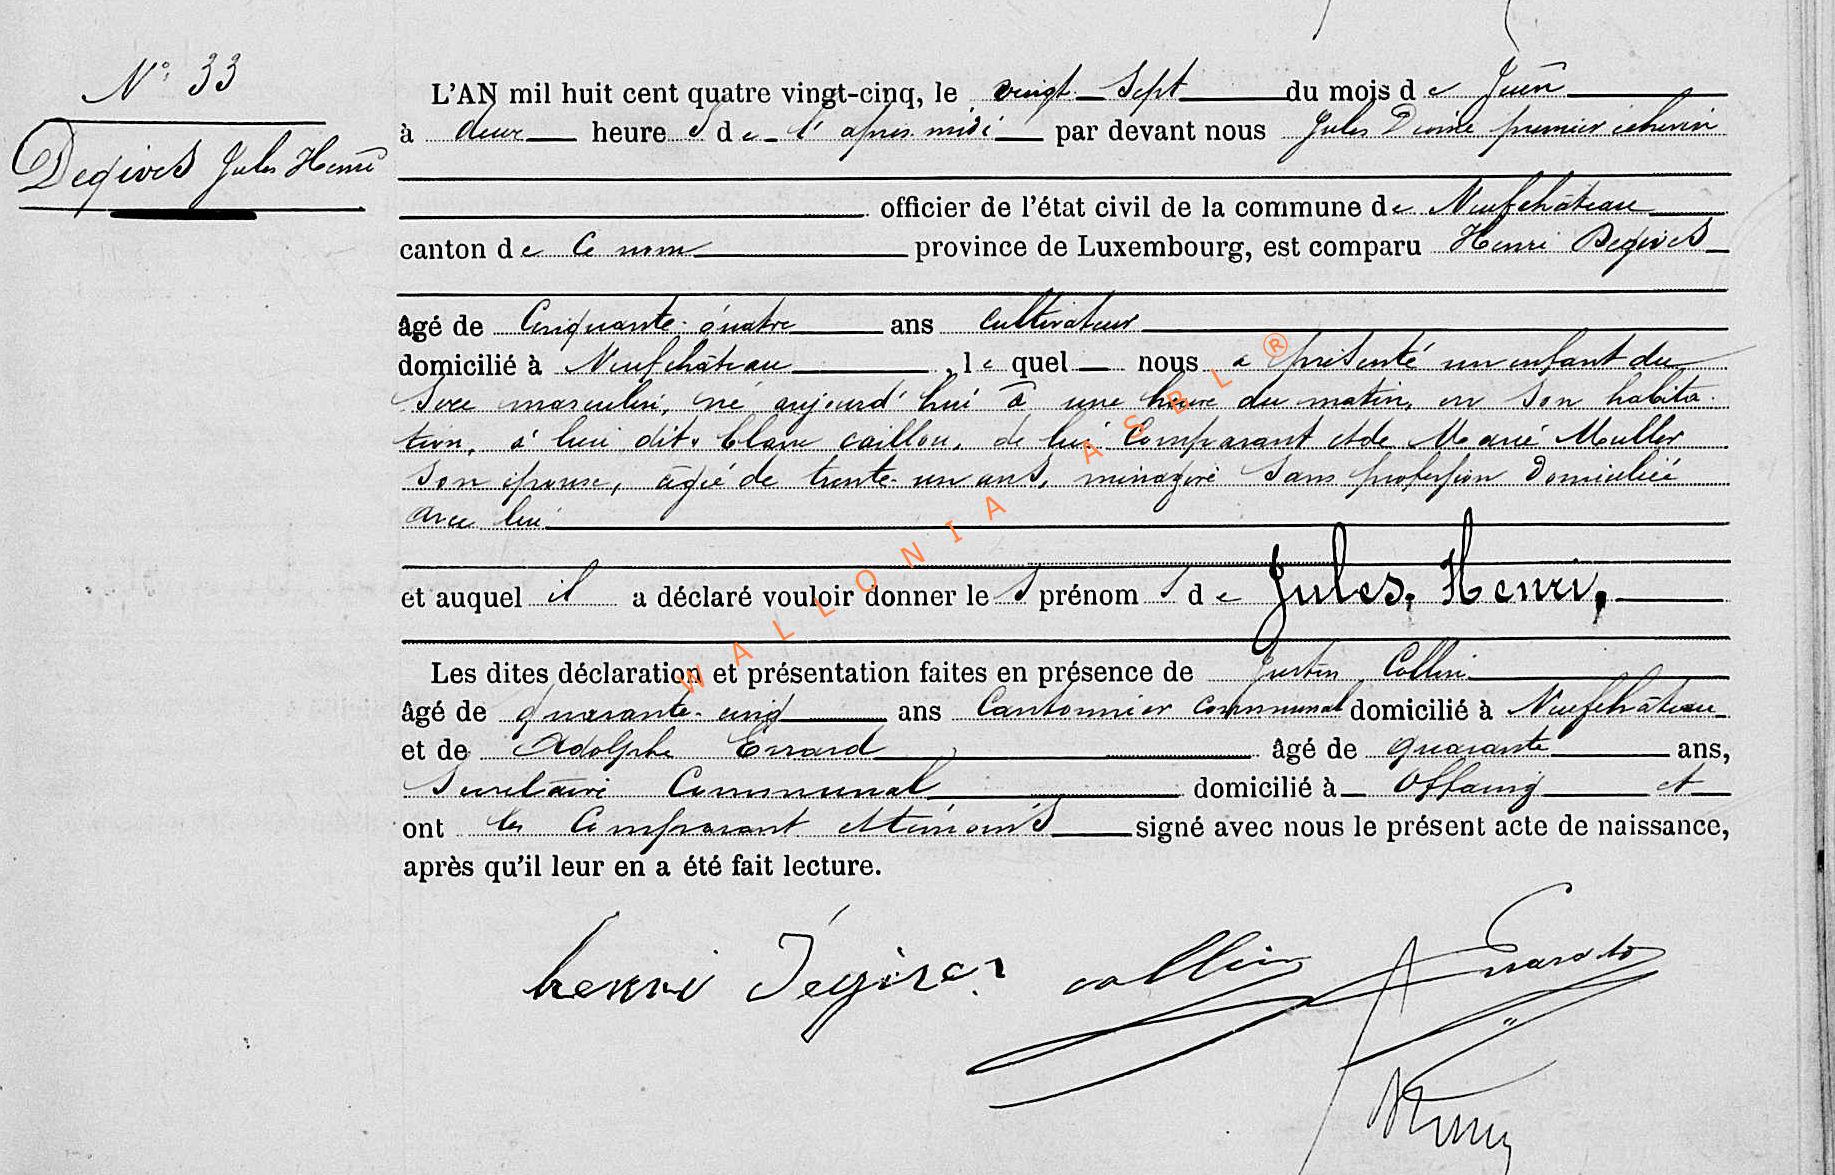 N° 33
Degives Jules Henri
L'AN mil huit cent quatre vingt-cinq, le vingt sept du mois de Juin
à deux heures de l'après-midi par devant nous Jules premier échevin
officier de l'état civil de la commune de Neufchâteau
canton de ce nom province de Luxembourg, est comparu Henri Degives
âgé de Cinquante-quatre ans cultivateur
domicilié à Neufchâteau, lequel nous a présenté un enfant du
sexe masculin, né aujourd'hui à une heure du matin, en son habita-
tion, à lieu dit: blanc caillou, de lui comparant et de Marie Muller
son épouse, âgée de trente-un ans, ménagère sans profession domiciliée
avec lui
et auquel il a déclaré vouloir donner les prénoms de Jules, Henri,
Les dites déclaration et présentation faites en présence de Justin Collin
âgé de quarante-cinq ans Cantonnier communal domicilié à Neufchâteau
et de Adolphe Errard âgé de quarante ans,
Secrétaire Communal domicilié à Offaing et
ont les Comparant et témoins signé avec nous le présent acte de naissance,
après qu'il leur en a été fait lecture.
henri Dégives collin A Errard
WALLONIA ASBL ®